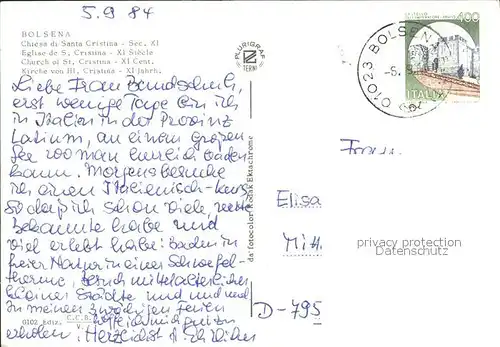 5.9.84
BOLSENA
Chiesa di Santa Cristina - Sec. XI
Eglise de S. Cristina - XI Siècle
Church of St. Cristina - XI Cent.
Kirche von Hl. Cristina - XI Jahrh.
PLURIGRAF
TERNI
01023 BOLSENA
400
ITALIA
Liebe Frau Bundschuh,
erst wenige Tage bin ich
in Italien in der Provinz
Latium, an einem großen
See wo man herrlich baden
kann. Morgens besuche
ich einen Italienisch-kurs
so daß ich schon viele, nette
Bekannte habe und
viel erlebt habe: Baden in
freier Natur in einer Schwefel-
therme, Besuch mittelalterlicher
kleiner Städte und und und
In meinen Ferien
erholen. Herzlichst
da fotocolor Kodak Ektachrome
Elisa
Mitt
privacy protection
Datenschutz
D-795